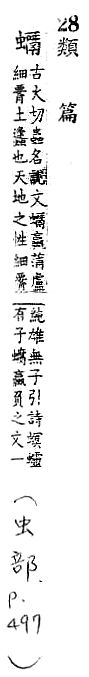 28類篇
蠣 古火切蟲名說文蠣蠃蒲盧
細腰土蠭也天地之性細腰
純雄無子引詩螟蠕
有子蠣蠃負之文一
(虫部. p. 497)